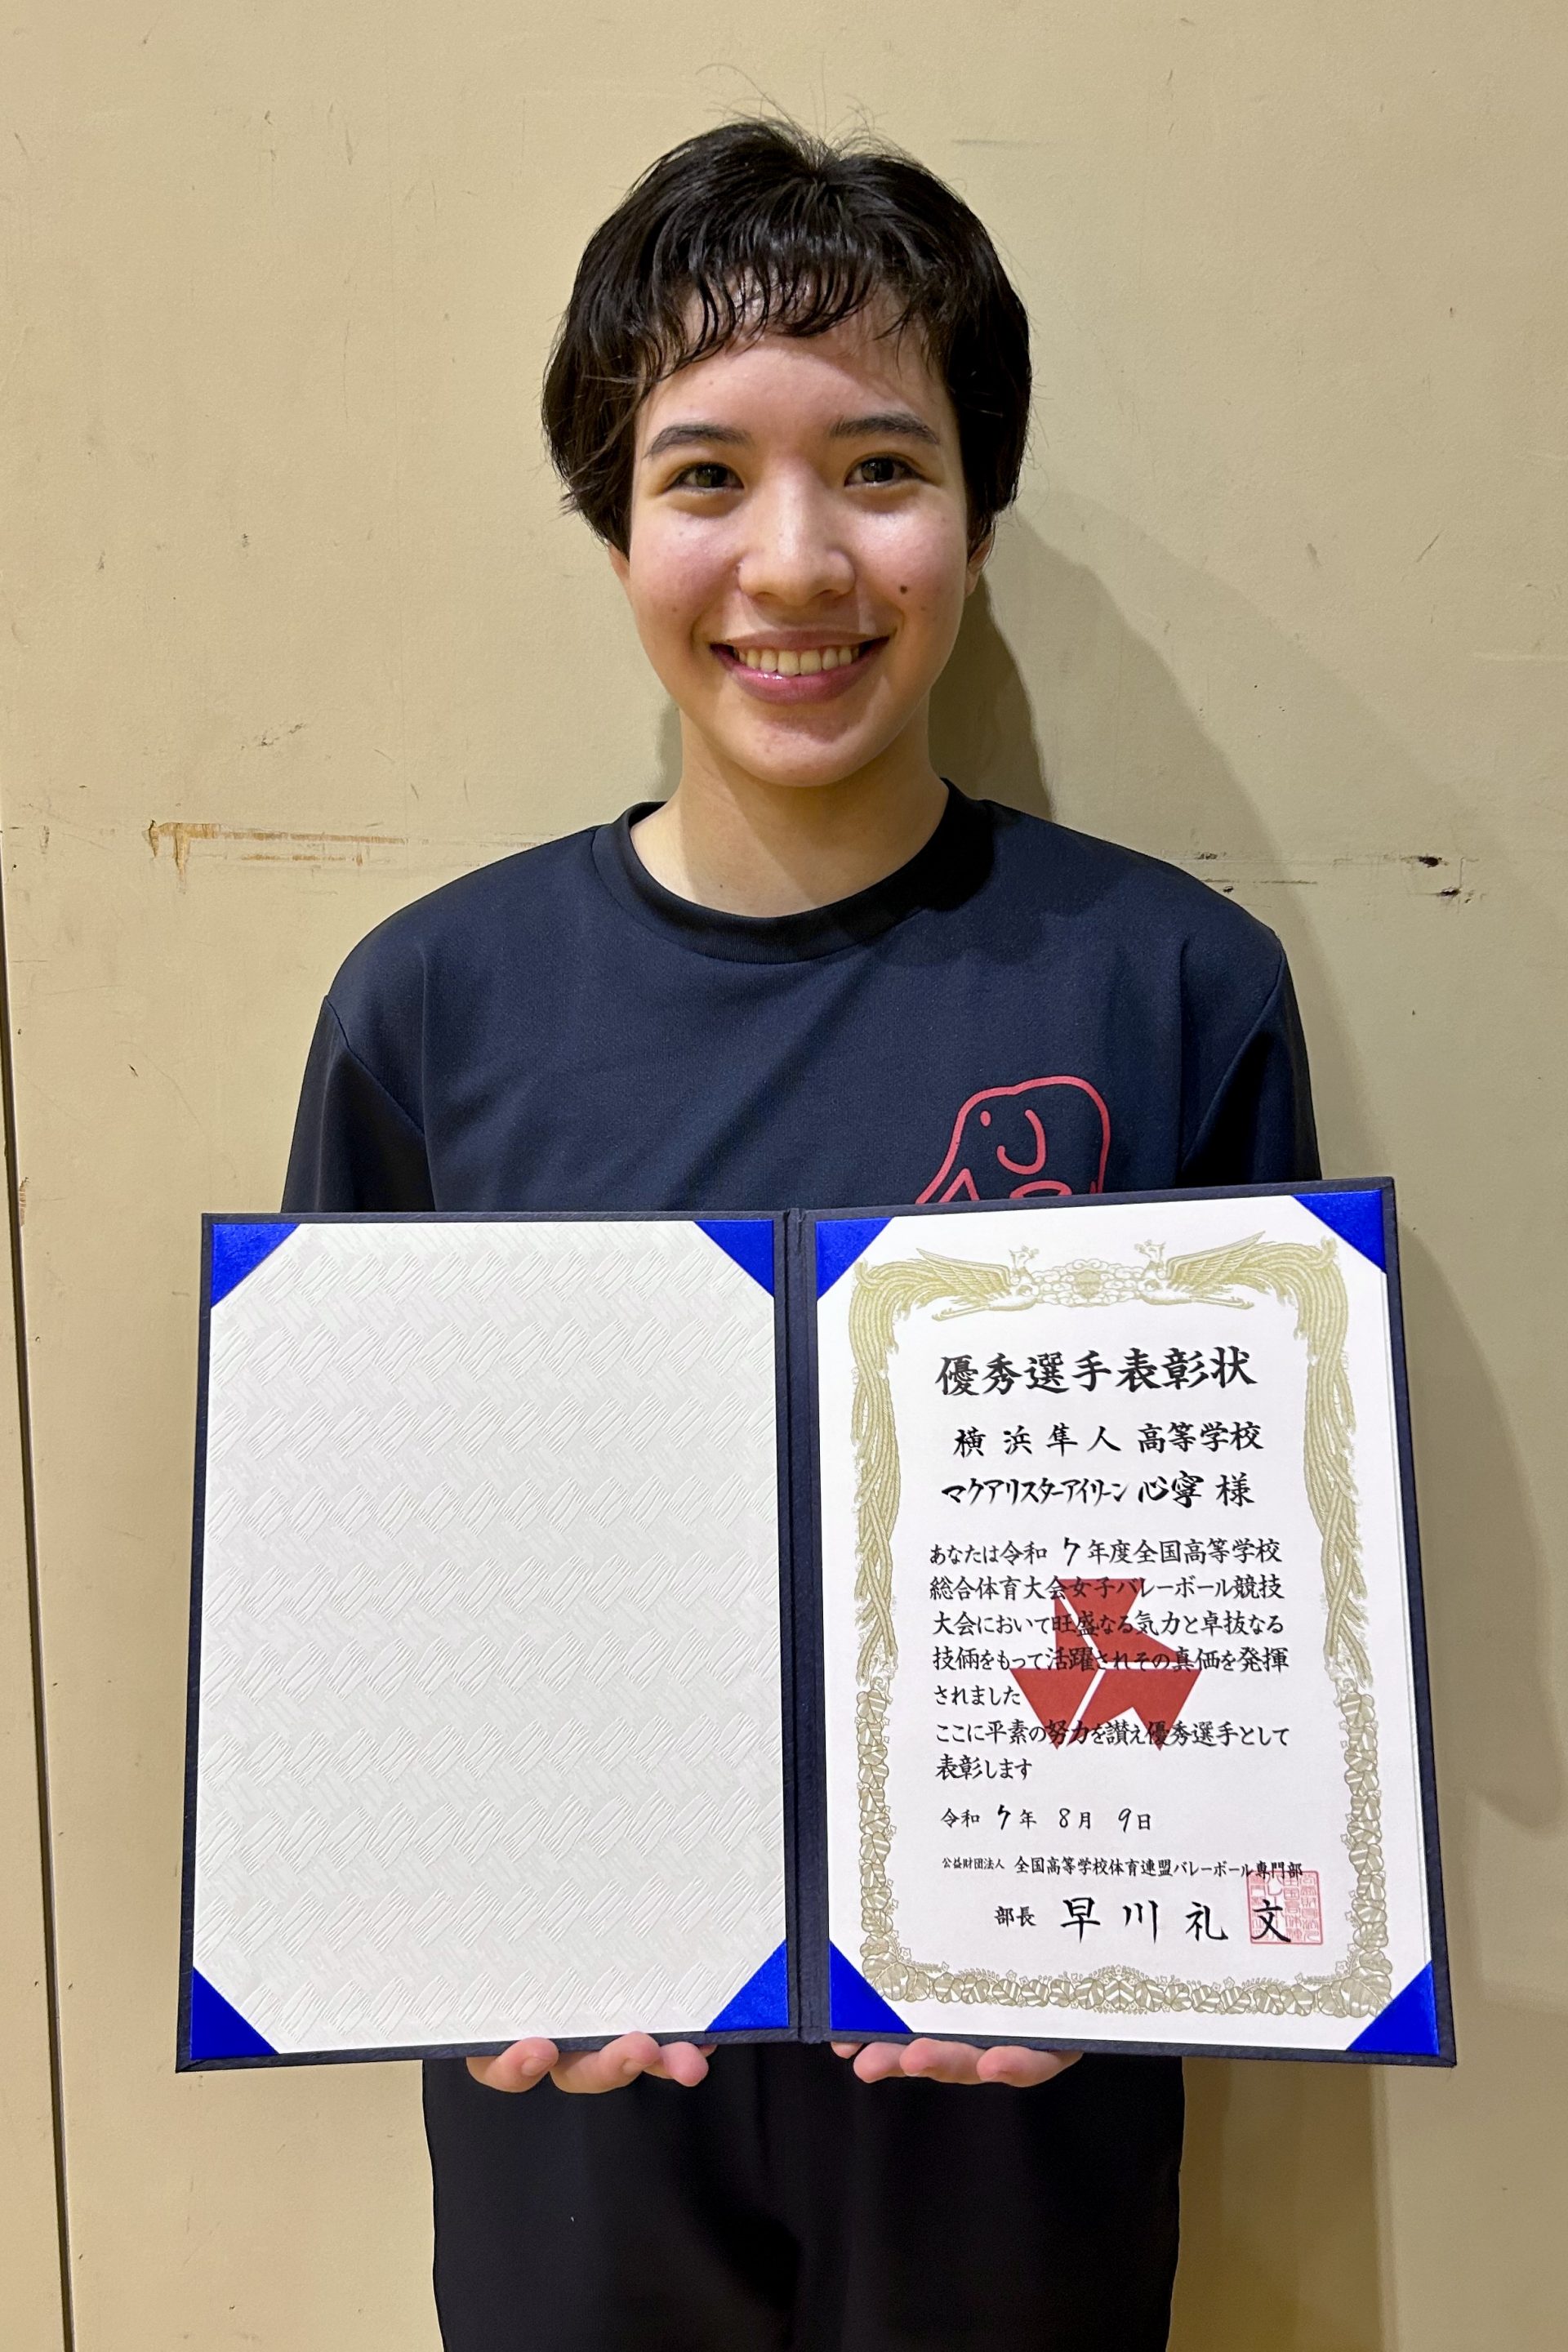 優秀選手表彰状
横浜隼人高等学校
マクアリスターアイリーン 心寧 様
あなたは令和 7 年度全国高等学校
総合体育大会女子バレーボール競技
大会において旺盛なる気力と卓抜なる
技倆をもって活躍されその真価を発揮
されました
ここに平素の努力を讃え優秀選手として
表彰します
令和 7 年 8 月 9 日
公益財団法人 全国高等学校体育連盟バレーボール専門部
部長 早川礼文